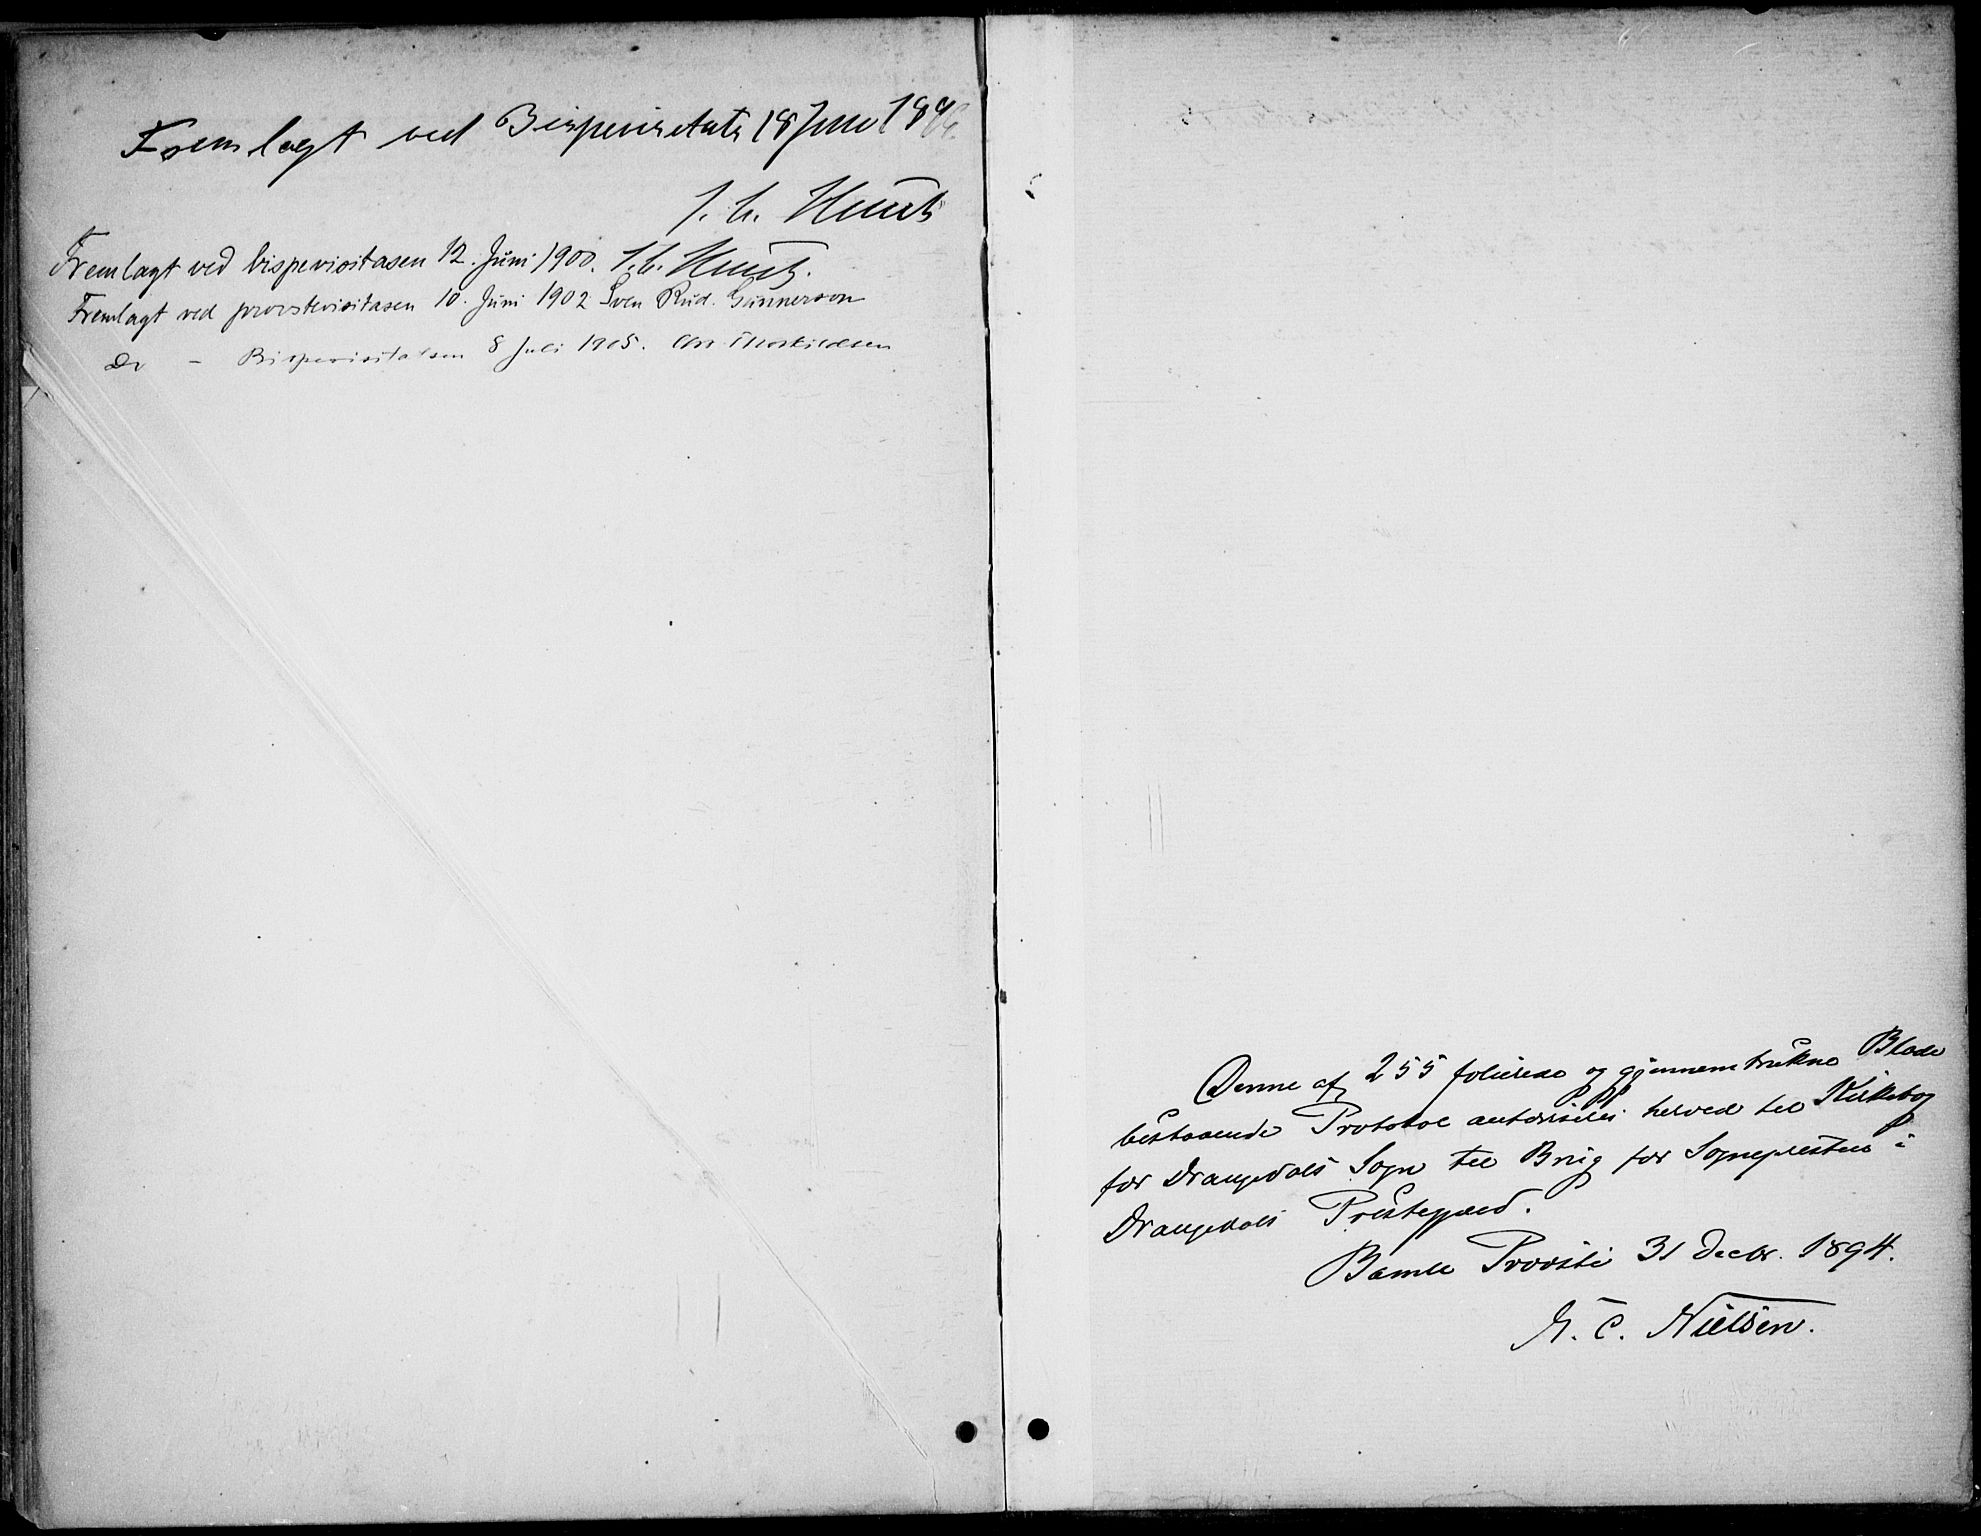 Fremlagt ved Bispevisitats 18 Juni 189
J. C. Heuch
Fremlagt ved bispevisitasen 12. Juni 1900. J. C. Heuch.
Fremlagt ved provstevisitasen 10. Juni 1902 Sven Rud. Gunnerson
Do - Bispevisitatsen 8 Juli 1905. Chr Thorkildsen
Denne af 255 folierede og gjennemtrukne Blade
bestaaende Protokol autoriseres herved til Kirkebog
for Drangedals Sogn til Brug for Sognepresten i
Drangedals Prestegjæld.
Bamle Provsti 31 Decbr. 1894.
N. C. Nielsen.